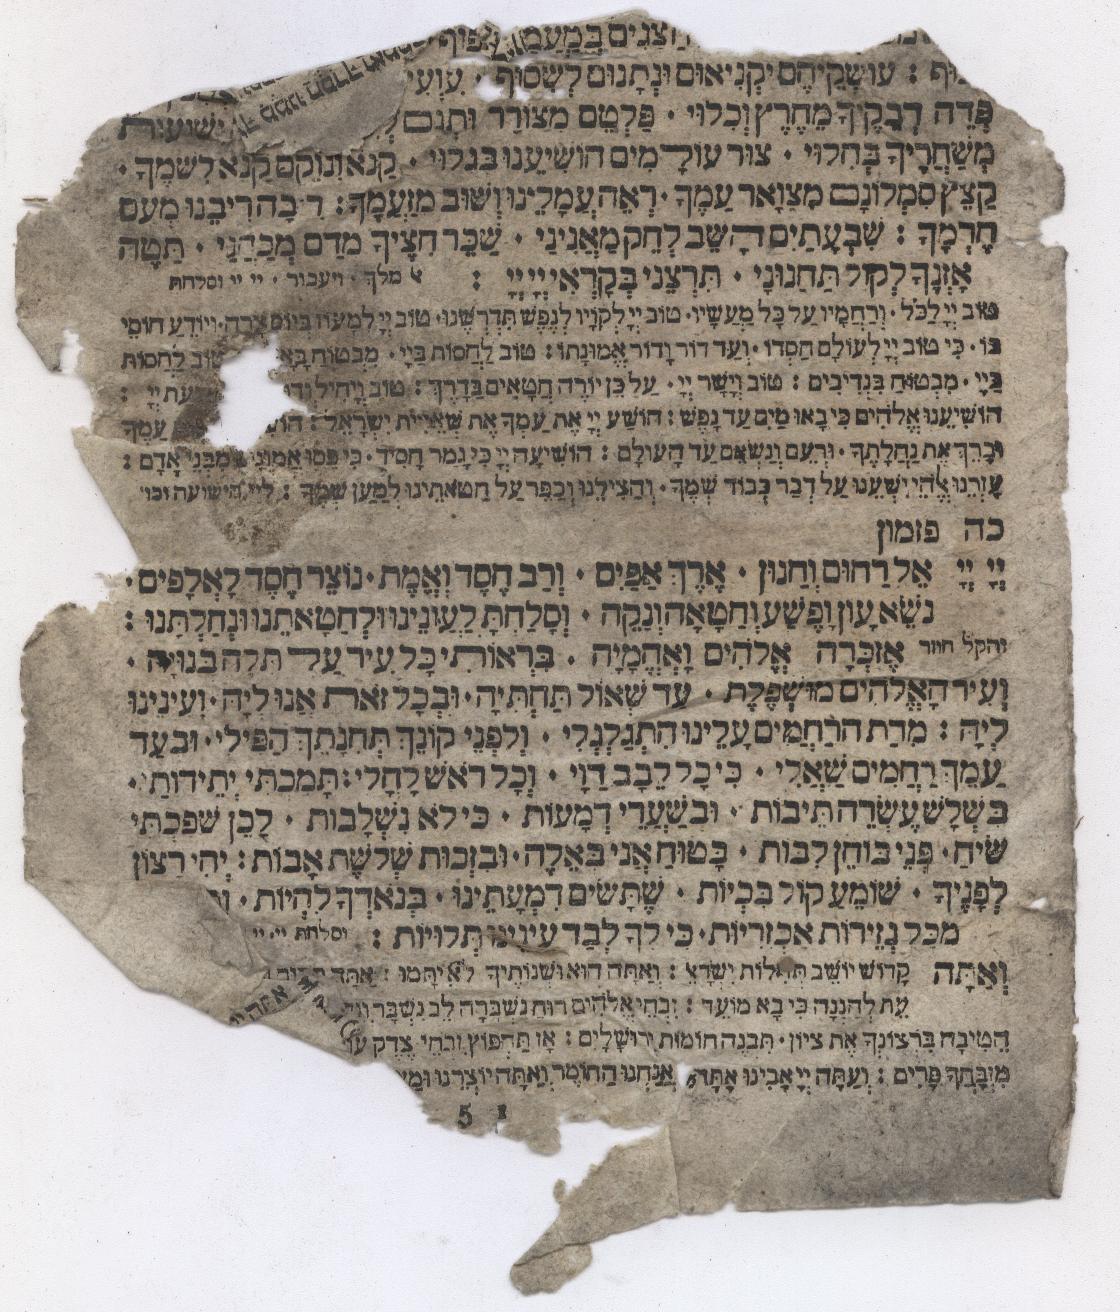 חצנים במעמ
עושקיהם יקניאום ונתנום לשסוף · עועי
פדה דבקיך מחרץ וכלוי · פלטם מצורר ותנם ישועות
משחריך בחלוי · צור עולמים הושיענו בגלוי · קנאתו קם קנא לשמך ·
קצץ סמלונם מצואר עמך · ראה עמלינו ושוב מזעמך : ריבה ריבנו מעם
חרמך : שבעתים השב לחק מאניני · שכר חציך מדם מכהני · תטה
אזנך לקול תחנוני · תרצני בקראי ייי ייי : מלך · ויעבור · יי יי וסלחת
טוב ייי לכל · ורחמיו על כל מעשיו · טוב ייי לקויו לנפש תדרשנו · טוב ייי למעוז ביום צרה · ויודע חוסי
בו · כי טוב ייי לעולם חסדו · ועד דור ודור אמונתו : טוב לחסות ביי · מבטוח טוב לחסות
ביי · מבטוח בנדיבים : טוב וישר יי · על כן יורה חטאים בדרך : טוב ויחיל יי :
הושיענו אלהים כי באו מים עד נפש : הושע ייי את עמך את שארית ישראל : עמך
וברך את נחלתך · ורעם ונשאם עד העולם : הושיעה ייי כי גמר חסיד · כי פסו אמונים מבני אדם :
עזרנו אלהי ישענו על דבר כבוד שמך · והצילנו וכפר על חטאתינו למען שמך : ליי הישועה וכו׳
כה פזמון
ייי ייי אל רחום וחנון · ארך אפים · ורב חסד ואמת · נוצר חסד לאלפים ·
נשא עון ופשע וחטאה ונקה · וסלחת לעונינו ולחטאתנו ונחלתנו :
והקל חוזר אזכרה אלהים ואהמיה · בראותי כל עיר על תלה בנויה ·
ועיר האלהים מושפלת · עד שאול תחתיה · ובכל זאת אנו ליה · ועינינו
ליה : מדת הרחמים עלינו התגלגלי · ולפני קונך תחנתך הפילי · ובעד
עמך רחמים שאלי · כי כל לבב דוי · וכל ראש לחלי : תמכתי יתידותי ·
בשלש עשרה תיבות · ובשערי דמעות · כי לא נשלבות · לכן שפכתי
שיח · פני בוחן לבות · בטוח אני באלה · ובזכות שלשת אבות : יהי רצון
לפניך · שומע קול בכיות · שתשים דמעתינו · בנאדך להיות ·
מכל גזירות אכזריות · כי לך לבד עינינו תלויות : וסלחת יי · יי
ואתה קדוש יושב תהלות ישרא׳ : ואתה הוא ושנותיך לא יתמו : אתה
עת להננה כי בא מועד : זבחי אלהים רוח נשברה לב נשבר
הטיבה ברצונך את ציון · תבנה חומות ירושלים : אז תחפוץ זבחי צדק
מזבחך פרים : ועתה ייי אבינו אתה אנחנו החומר ואתה יוצרנו
5